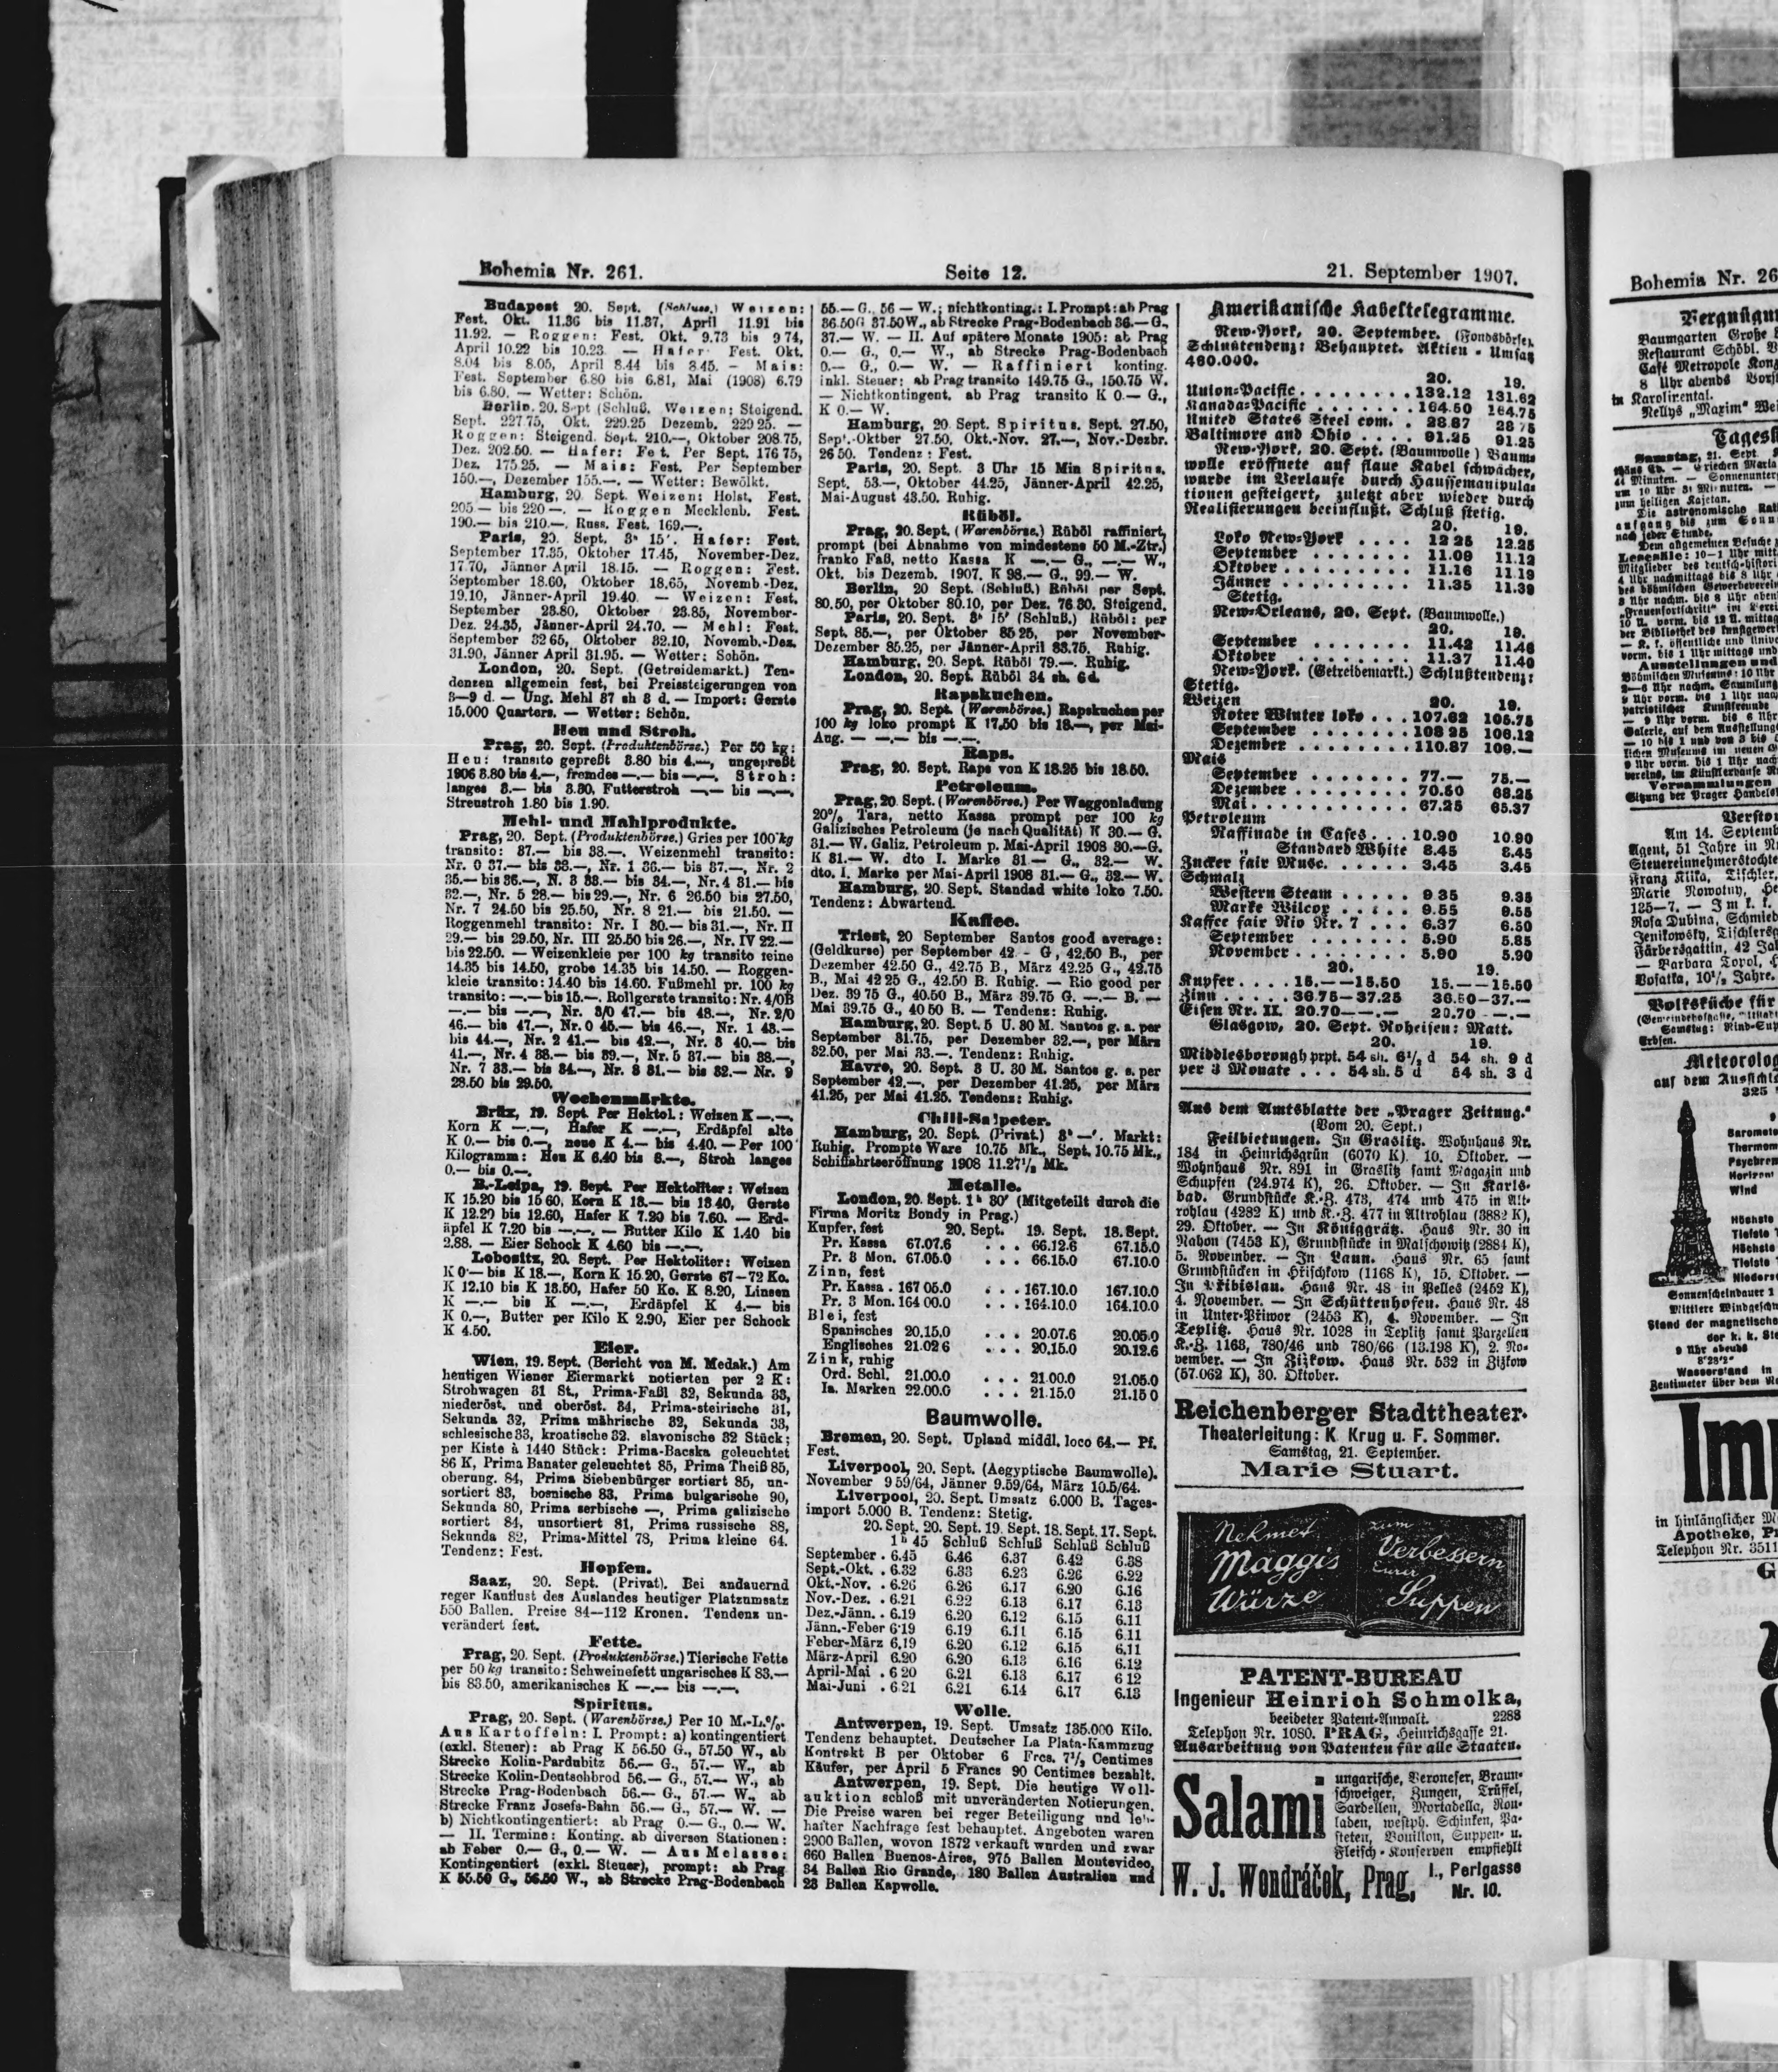 Bohemia Nr. 261.
Seite 12.
21. September 1907.
Budapest 20. Sept. (Schluss.) Weizen:
Fest. Okt. 11.36 bis 11.37, April 11.91 bis
11.92. — Roggen: Fest. Okt. 9.73 bis 9 74,
April 10.22 bis 10.23. — Hafer Fest. Okt.
8.04 bis 8.05, April 8.44 bis 8.45. — Mais:
Fest. September 6.80 bis 6.81, Mai (1908) 6.79
bis 6.80. — Wetter: Schön.
Berlin. 20. Sept (Schluß. Weizen: Steigend.
Sept. 227.75, Okt. 229.25 Dezemb. 229 25. —
Roggen: Steigend. Sept. 210.—, Oktober 208.75,
Dez. 202.50. — Hafer: Fe t. Per Sept. 176 75,
Dez. 175 25. — Mais: Fest. Per September
150.—, Dezember 155.—. — Wetter: Bewölkt.
Hamburg, 20. Sept. Weizen: Holst. Fest.
205 — bis 220 —. — Roggen Mecklenb. Fest.
190.— bis 210.—. Russ. Fest. 169.—.
Paris, 20. Sept. 3ʰ 15'. Hafer: Fest.
September 17.35, Oktober 17.45, November-Dez.
17.70, Jänner April 18.15. — Roggen: Fest.
September 18.60, Oktober 18.65, Novemb.-Dez.
19.10, Jänner-April 19.40. — Weizen: Fest.
September 23.80, Oktober 23.85, November-
Dez. 24.35, Jänner-April 24.70. — Mehl: Fest.
September 32 65, Oktober 32.10, Novemb.-Dez.
31.90, Jänner April 31.95. — Wetter: Schön.
London, 20. Sept. (Getreidemarkt.) Ten-
denzen allgemein fest, bei Preissteigerungen von
3—9 d. — Ung. Mehl 37 sh 3 d. — Import: Gerste
15.000 Quarters. — Wetter: Schön.
Heu und Stroh.
Prag, 20. Sept. (Produktenbörse.) Per 50 kg:
Heu: transito gepreßt 3.80 bis 4.—, ungepreßt
1906 3.80 bis 4.—, fremdes —.— bis —.—. Stroh:
langes 3.— bis 3.30, Futterstroh —.— bis —.—.
Streustroh 1.80 bis 1.90.
Mehl- und Mahlprodukte.
Prag, 20. Sept. (Produktenbörse.) Gries per 100 kg
transito: 37.— bis 38.—. Weizenmehl transito:
Nr. 0 37.— bis 38.—, Nr. 1 36.— bis 37.—, Nr. 2
35.— bis 36.—, N. 3 33.— bis 34.—, Nr. 4 31.— bis
32.—, Nr. 5 28.— bis 29.—, Nr. 6 26.50 bis 27.50,
Nr. 7 24.50 bis 25.50, Nr. 8 21.— bis 21.50. —
Roggenmehl transito: Nr. I 30.— bis 31.—, Nr. II
29.— bis 29.50, Nr. III 25.50 bis 26.—, Nr. IV 22.—
bis 22.50. — Weizenkleie per 100 kg transito feine
14.35 bis 14.50, grobe 14.35 bis 14.50. — Roggen-
kleie transito: 14.40 bis 14.60. Fußmehl pr. 100 kg
transito: —.— bis 15.—. Rollgerste transito: Nr. 4/0B
—.— bis —.—, Nr. 3/0 47.— bis 48.—, Nr. 2/0
46.— bis 47.—, Nr. 0 45.— bis 46.—, Nr. 1 43.—
bis 44.—, Nr. 2 41.— bis 42.—, Nr. 3 40.— bis
41.—, Nr. 4 38.— bis 39.—, Nr. 5 37.— bis 38.—,
Nr. 7 33.— bis 34.—, Nr. 8 31.— bis 32.— Nr. 9
28.50 bis 29.50.
Wochenmärkte.
Brüx, 19. Sept. Per Hektol.: Weizen K —.—,
Korn K —.—, Hafer K —.—, Erdäpfel alte
K 0.— bis 0.—, neue K 4.— bis 4.40. — Per 100
Kilogramm: Heu K 6.40 bis 8.—, Stroh langes
0.— bis 0.—.
B.-Leipa, 19. Sept. Per Hektoliter: Weizen
K 15.20 bis 15 60, Korn K 13.— bis 13 40, Gerste
K 12.20 bis 12.60, Hafer K 7.20 bis 7.60. — Erd-
äpfel K 7.20 bis —.—. — Butter Kilo K 1.40 bis
2.88. — Eier Schock K 4.60 bis —.—.
Lobositz, 20. Sept. Per Hektoliter: Weizen
K 0·— bis K 18.—, Korn K 15 20, Gerste 67—72 Ko.
K 12.10 bis K 13.50, Hafer 50 Ko. K 8.20, Linsen
K —.— bis K —.—, Erdäpfel K 4.— bis
K 0.—, Butter per Kilo K 2.90, Eier per Schock
K 4.50.
Eier.
Wien, 19. Sept. (Bericht von M. Medak.) Am
heutigen Wiener Eiermarkt notierten per 2 K:
Strohwagen 31 St., Prima-Faßl 32, Sekunda 33,
niederöst. und oberöst. 34, Prima-steirische 31,
Sekunda 32, Prima mährische 32, Sekunda 33,
schlesische 33, kroatische 32. slavonische 32 Stück;
per Kiste à 1440 Stück: Prima-Bacska geleuchtet
86 K, Prima Banater geleuchtet 85, Prima Theiß 85,
oberung. 84, Prima Siebenbürger sortiert 85, un-
sortiert 83, bosnische 83, Prima bulgarische 90,
Sekunda 80, Prima serbische —, Prima galizische
sortiert 84, unsortiert 81, Prima russische 88,
Sekunda 82, Prima-Mittel 73, Prima kleine 64.
Tendenz: Fest.
Hopfen.
Saaz, 20. Sept. (Privat). Bei andauernd
reger Kauflust des Auslandes heutiger Platzumsatz
550 Ballen. Preise 84—112 Kronen. Tendenz un-
verändert fest.
Fette.
Prag, 20. Sept. (Produktenbörse.) Tierische Fette
per 50 kg transito: Schweinefett ungarisches K 83.—
bis 83.50, amerikanisches K —.— bis —.—.
Spiritus.
Prag, 20. Sept. (Warenbörse.) Per 10 M.-L.%.
Aus Kartoffeln: I. Prompt: a) kontingentiert
(exkl. Steuer): ab Prag K 56.50 G., 57.50 W., ab
Strecke Kolin-Pardubitz 56.— G., 57.— W., ab
Strecke Kolin-Deutschbrod 56.— G., 57.— W., ab
Strecke Prag-Bodenbach 56.— G., 57.— W., ab
Strecke Franz Josefs-Bahn 56.— G., 57.— W. —
b) Nichtkontingentiert: ab Prag 0.— G., 0.— W.
— II. Termine: Konting. ab diversen Stationen:
ab Feber 0.— G., 0.— W. — Aus Melasse:
Kontingentiert (exkl. Steuer), prompt: ab Prag
K 55.50 G., 56.50 W., ab Strecke Prag-Bodenbach
55.— G., 56 — W.; nichtkonting.: I. Prompt: ab Prag
36.50 G 37.50 W., ab Strecke Prag-Bodenbach 36.— G.,
37.— W. — II. Auf spätere Monate 1905: ab Prag
0.— G., 0.— W., ab Strecke Prag-Bodenbach
0.— G., 0.— W. — Raffiniert konting.
inkl. Steuer: ab Prag transito 149.75 G., 150.75 W.
— Nichtkontingent. ab Prag transito K 0.— G.,
K 0.— W.
Hamburg, 20. Sept. Spiritus. Sept. 27.50,
Sept.-Oktber 27.50, Okt.-Nov. 27.—, Nov.-Dezbr.
26 50. Tendenz: Fest.
Paris, 20. Sept. 3 Uhr 15 Min Spiritus.
Sept. 53.—, Oktober 44.25, Jänner-April 42.25,
Mai-August 43.50. Ruhig.
Rüböl.
Prag, 20. Sept. (Warenbörse.) Rüböl raffiniert,
prompt (bei Abnahme von mindestens 50 M.-Ztr.)
franko Faß, netto Kassa K —.— G., —.— W.,
Okt. bis Dezemb. 1907. K 98.— G., 99.— W.
Berlin, 20 Sept. (Schluß.) Rüböl per Sept.
80.50, per Oktober 80.10, per Dez. 76.30. Steigend.
Paris, 20. Sept. 3ʰ 15' (Schluß.) Rüböl: per
Sept. 85.—, per Oktober 85 25, per November-
Dezember 85.25, per Jänner-April 83.75. Ruhig.
Hamburg. 20. Sept. Rüböl 79.—. Ruhig.
London, 20. Sept. Rüböl 34 sh. 6d.
Rapskuchen.
Prag, 20. Sept. (Warenbörse.) Rapskuchen per
100 kg loko prompt K 17.50 bis 18.—, per Mai-
Aug. — —.— bis —.—.
Raps.
Prag, 20. Sept. Raps von K 18.25 bis 18.50.
Petroleum.
Prag, 20 Sept. (Warenbörse.) Per Waggonladung
20% Tara, netto Kassa prompt per 100 kg
Galizisches Petroleum (je nach Qualität) K 30.— G.
31.— W. Galiz. Petroleum p. Mai-April 1908 30.—G.
K 31.— W. dto I. Marke 31.— G., 32.— W.
dto. I. Marke per Mai-April 1908 31.— G., 32.— W.
Hamburg, 20. Sept. Standad white loko 7.50.
Tendenz: Abwartend.
Kaffee.
Triest, 20 September Santos good average:
(Geldkurse) per September 42 - G, 42.50 B., per
Dezember 42.50 G., 42.75 B., März 42.25 G., 42.75
B., Mai 42 25 G., 42.50 B. Ruhig. — Rio good per
Dez. 39 75 G., 40.50 B., März 39.75 G. —.— B. —
Mai 39.75 G., 40 50 B. — Tendenz: Ruhig.
Hamburg, 20. Sept. 5 U. 30 M. Santos g. a. per
September 31.75, per Dezember 32.—, per März
32.50, per Mai 33.—. Tendenz: Ruhig.
Havre, 20. Sept. 3 U. 30 M. Santos g. a. per
September 42.—, per Dezember 41.25, per März
41.25, per Mai 41.25. Tendenz: Ruhig.
Chili-Salpeter.
Hamburg, 20. Sept. (Privat.) 3ʰ —'. Markt:
Ruhig. Prompte Ware 10.75 Mk., Sept. 10.75 Mk.,
Schiffahrtseröffnung 1908 11.27½ Mk.
Metalle.
London, 20. Sept. 1ʰ 30' (Mitgeteilt durch die
Firma Moritz Bondy in Prag.)
Kupfer, fest 20. Sept. 19. Sept. 18. Sept.
Pr. Kassa 67.07.6 . . . 66.12.6 67.15.0
Pr. 3 Mon. 67.05.0 . . . 66.15.0 67.10.0
Zinn, fest
Pr. Kassa . 167 05.0 . . . 167.10.0 167.10.0
Pr. 3 Mon. 164 00.0 . . . 164.10.0 164.10.0
Blei, fest
Spanisches 20.15.0 . . . 20.07.6 20.05.0
Englisches 21.02 6 . . . 20.15.0 20.12.6
Zink, ruhig
Ord. Schl. 21.00.0 . . . 21.00.0 21.05.0
Ia. Marken 22.00.0 . . . 21.15.0 21.15 0
Baumwolle.
Bremen, 20. Sept. Upland middl. loco 64.— Pf.
Fest.
Liverpool, 20. Sept. (Aegyptische Baumwolle).
November 9 59/64, Jänner 9.59/64, März 10.5/64.
Liverpool, 20. Sept. Umsatz 6.000 B. Tages-
import 5.000 B. Tendenz: Stetig.
20. Sept. 20. Sept. 19. Sept. 18. Sept. 17. Sept.
1ʰ 45 Schluß Schluß Schluß Schluß
September . 6.45 6.46 6.37 6.42 6.38
Sept.-Okt. . 6.32 6.33 6.23 6.26 6.22
Okt.-Nov. . 6.26 6.26 6.17 6.20 6.16
Nov.-Dez. . 6.21 6.22 6.13 6.17 6.13
Dez.-Jänn. . 6.19 6.20 6.12 6.15 6.11
Jänn.-Feber 6·19 6.19 6.11 6.15 6.11
Feber-März 6.19 6.20 6.12 6.15 6.11
März-April 6.20 6.20 6.13 6.16 6.12
April-Mai . 6 20 6.21 6.13 6.17 6 12
Mai-Juni . 6.21 6.21 6.14 6.17 6.13
Wolle.
Antwerpen, 19. Sept. Umsatz 135.000 Kilo.
Tendenz behauptet. Deutscher La Plata-Kammzug
Kontrakt B per Oktober 6 Frcs. 7½ Centimes
Käufer, per April 5 Francs 90 Centimes bezahlt.
Antwerpen, 19. Sept. Die heutige Woll-
auktion schloß mit unveränderten Notierungen.
Die Preise waren bei reger Beteiligung und leb-
hafter Nachfrage fest behauptet. Angeboten waren
2900 Ballen, wovon 1872 verkauft wurden und zwar
660 Ballen Buenos-Aires, 975 Ballen Montevideo,
34 Ballen Rio Grande, 180 Ballen Australien und
23 Ballen Kapwolle.
Amerikanische Kabeltelegramme.
New-York, 20. September. (Fondsbörse).
Schlußtendenz: Behauptet. Aktien - Umsatz
460.000.
20. 19.
Union-Pacific . . . . . . . 132.12 131.62
Kanada-Pacific . . . . . . . 164.50 164.75
United States Steel com. . 28.87 28 75
Baltimore and Ohio . . . . 91.25 91.25
New-York, 20. Sept. (Baumwolle) Baum-
wolle eröffnete auf flaue Kabel schwächer,
wurde im Verlaufe durch Haussemanipula-
tionen gesteigert, zuletzt aber wieder durch
Realisierungen beeinflußt. Schluß stetig.
20. 19.
Loko New-York . . . . 12 25 12.25
September . . . . . . . 11.09 11.12
Oktober . . . . . . . . 11.16 11.19
Jänner . . . . . . . . 11.35 11.39
Stetig.
New-Orleans, 20. Sept. (Baumwolle.)
20. 19.
September . . . . . . . 11.42 11.46
Oktober . . . . . . . . 11.37 11.40
New-York. (Getreidemarkt.) Schlußtendenz:
Stetig.
Weizen 20. 19.
Roter Winter loko . . . 107.62 105.75
September . . . . . . . 108 25 106.12
Dezember . . . . . . . . 110.87 109.—
Mais
September . . . . . . . 77.— 75.—
Dezember . . . . . . . . 70.50 68.25
Mai . . . . . . . . . . 67.25 65.37
Petroleum
Raffinade in Cases . . . 10.90 10.90
„ Standard White 8.45 8.45
Zucker fair Musc. . . . . 3.45 3.45
Schmalz
Western Steam . . . . . 9 35 9.35
Marke Wilcox . . . . . 9.55 9.55
Kaffee fair Rio Nr. 7 . . . 6.37 6.50
September . . . . . . . 5.90 5.85
November . . . . . . . . 5.90 5.90
20. 19.
Kupfer . . . . 15.— —15.50 15.— —15.50
Zinn . . . . . 36.75—37.25 36.50—37.—
Eisen Nr. II. 20.70—.—.— 20.70 —.—
Glasgow, 20. Sept. Roheisen: Matt.
20. 19.
Middlesborough prpt. 54 sh. 6½ d 54 sh. 9 d
per 3 Monate . . . 54 sh. 5 d 54 sh. 3 d
Aus dem Amtsblatte der „Prager Zeitung.“
(Vom 20. Sept.)
Feilbietungen. In Graslitz. Wohnhaus Nr.
184 in Heinrichsgrün (6070 K). 10. Oktober. —
Wohnhaus Nr. 891 in Graslitz samt Magazin und
Schupfen (24.974 K), 26. Oktober. — In Karls-
bad. Grundstücke K.-Z. 473, 474 und 475 in Alt-
rohlau (4282 K) und K.-Z. 477 in Altrohlau (3882 K),
29. Oktober. — In Königgrätz. Haus Nr. 30 in
Rahon (7453 K), Grundstücke in Malschowitz (2884 K),
5. November. — In Laun. Haus Nr. 65 samt
Grundstücken in Hřischkow (1168 K), 15. Oktober. —
In Přibislau. Haus Nr. 48 in Pelles (2452 K),
4. November. — In Schüttenhofen. Haus Nr. 48
in Unter-Přiwor (2453 K), 4. November. — In
Teplitz. Haus Nr. 1028 in Teplitz samt Parzellen
K.-Z. 1163, 780/46 und 780/66 (13.198 K), 2. No-
vember. — In Žižkow. Haus Nr. 532 in Žižkow
(57.062 K), 30. Oktober.
Reichenberger Stadttheater.
Theaterleitung: K Krug u. F. Sommer.
Samstag, 21. September.
Marie Stuart.
Nehmet
Maggis
Würze
zum
Verbessern
Eurer
Suppen
PATENT-BUREAU
Ingenieur Heinrich Schmolka,
beeideter Patent-Anwalt. 2288
Telephon Nr. 1080. PRAG, Heinrichsgasse 21.
Ausarbeitung von Patenten für alle Staaten.
Salami
ungarische, Veroneser, Braun-
schweiger, Zungen, Trüffel,
Sardellen, Mortadella, Rou-
laden, westph. Schinken, Pa-
steten, Bouillon, Suppen- u.
Fleisch-Konserven empfiehlt
W. J. Wondráček, Prag, I., Perlgasse
Nr. 10.
Bohemia Nr. 26
Baumgarten Große
Restaurant Schöbl.
Café Metropole
8 Uhr abends
in Karolinental.
Nellys „Maxim“
Baromete
Thermom
Psychrom
Horizont
Wind
Höchste
Tiefste
Höchste
Tiefste
Sonnenscheindauer
Imp
Telephon Nr. 3511